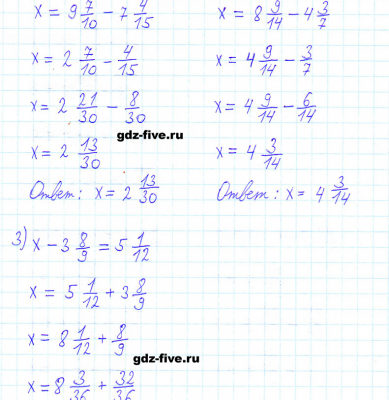 x = 9 7/10 − 7 4/15
x = 2 7/10 − 4/15
x = 2 21/30 − 8/30
x = 2 13/30
Ответ: x = 2 13/30
x = 8 9/14 − 4 3/7
x = 4 9/14 − 3/7
x = 4 9/14 − 6/14
x = 4 3/14
Ответ: x = 4 3/14
gdz-five.ru
3) x − 3 8/9 = 5 1/12
x = 5 1/12 + 3 8/9
x = 8 1/12 + 8/9
gdz-five.ru
x = 8 3/36 + 32/36